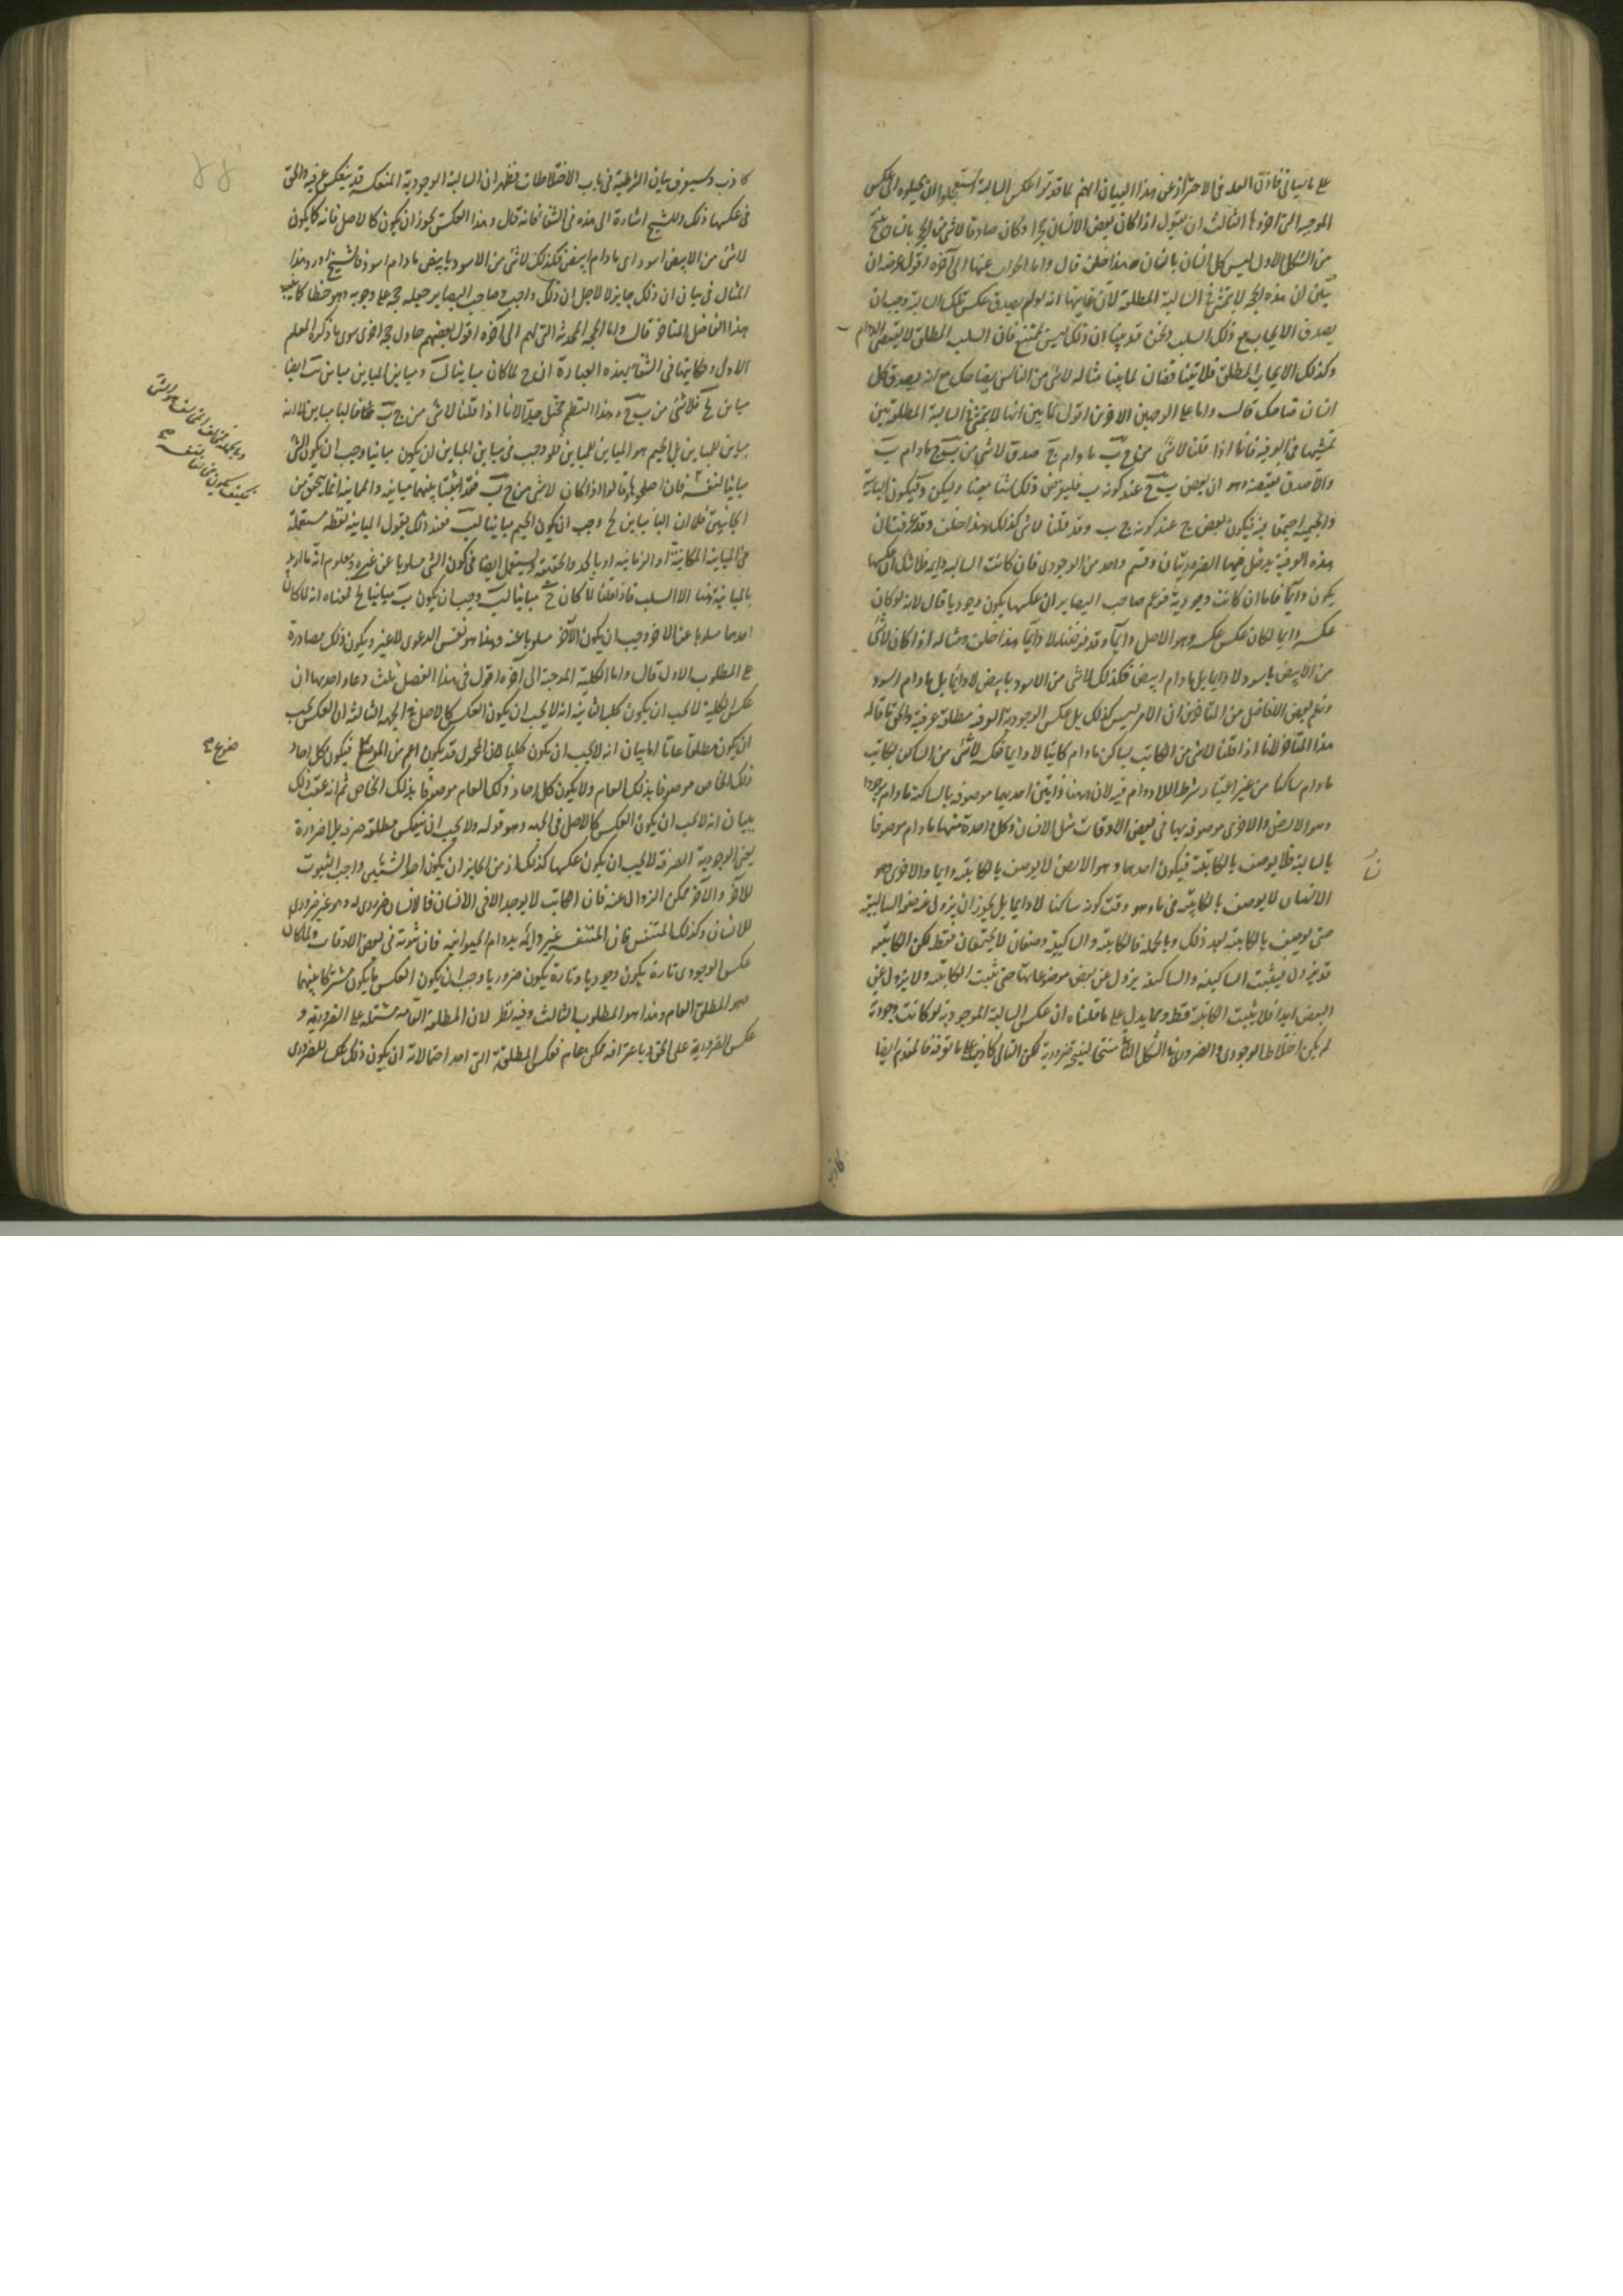 على ما سيأتى فاذن العلة فى الاحتراز عن هذا البيان انهم لما قدموا عكس السالبة استعجلوا لان يحيلوه الى عكس
الموجبة التى اخروها الثالث ان يقول اذا كان بعض الانسان حجرا وكان صادقا لا شئ من الحجر بانسان ينتج
من الشكل الاول ليس كل انسان بانسان هذا خلف قال واما الجواب عنها الى آخره اقول غرضه ان
يبين ان هذه الحجة لا تتمشى فى السالبة المطلقة لان غايتها انه لو لم يصدق عكس تلك السالبة وجب ان
يصدق الايجاب مع ذلك السلب ونحن قد بينا ان ذلك ليس بممتنع فان السلب المطلق لا يقتضى الدوام
وكذلك الايجاب المطلق فلا يتناقضان لما بينا مثاله لا شئ من الناس بضاحك مع انه يصدق كل
انسان ضاحك قال واما على الوجهين الاخرين اقول لما بين انها لا تتمشى فى السالبة المطلقة بين
تمشيها فى العرفية فانا اذا قلنا لا شئ من ج ب ما دام ج صدق لا شئ من ب ج ما دام ب
والا صدق نقيضه وهو ان بعض ب ج عند كونه ب فليفرض ذلك شيئا معينا وليكن د فيكون البائية
والجيمية اجتمعتا فيه فيكون بعض ج عند كونه ج ب وقد قلنا لا شئ كذلك هذا خلف وقد عرفت ان
هذه العرفية يدخل فيها الضروريتان وقسم واحد من الوجودى فان كانت السالبة دايمة فلا شك ان عكسها
يكون دايما فاما ان كانت وجودية فزعم صاحب البصاير ان عكسها يكون وجوديا قال لانه لو كان
عكسه دايما لكان عكس عكسه وهو الاصل دايما وقد فرضناه لا دايما هذا خلف ومثاله اذا كان لا شئ
من الابيض باسود لا دايما بل ما دام ابيض فكذلك لا شئ من الاسود بابيض لا دايما بل ما دام اسود
وزعم بعض الافاضل من المتاخرين ان الامر ليس كذلك بل عكس الوجودية العرفية مطلقة عرفية والحق ما قاله
هذا المتاخر لانا اذا قلنا لا شئ من الكاتب بساكن ما دام كاتبا لا دايما فعكسه لا شئ من الساكن بكاتب
ما دام ساكنا من غير اعتبار شرط اللا دوام فيه لان ههنا ذاتين احديهما موصوفة بالساكنة ما دام موجودا
وهو الارض والاخرى موصوفة بها فى بعض الاوقات مثل الانسان وكل واحدة منها ما دام موصوفا
بالساكنة فلا يوصف بالكاتبة فيكون احدها وهو الارض لا يوصف بالكاتبة دايما والاخرى وهو
الانسان لا يوصف بالكاتبة فى ما وهو وقت كونه ساكنا لا دايما بل يجوز ان يزول عنه صفة الساكنية
حتى يوصف بالكاتبة بعد ذلك وبالجملة فالكاتبة والساكنية وصفان لا يجتمعان فقط لكن الكاتبة
قد تزول فيثبت الساكنية والساكنة يزول عن بعض موضوعاتها حتى تثبت الكاتبة ولا يزول عن
البعض ابدا فلا يثبت الكاتبة قط ومما يدل على ما قلناه ان عكس السالبة الوجودية لو كانت وجودية
لم يكن اختلاط الوجودى والضرورى فى الشكل الثانى منتجا لنتيجة ضرورية لكن التالى كاذب على ما تعرفه فالمقدم ايضا
كاذب
كاذب وسيعرف بيان الشرطية فى باب الاختلاطات فظهر ان السالبة الوجودية المنعكسة قد ينعكس عرفية والحق
فى عكسها ذلك وللشيخ اشارة الى هذه فى الشفا فانه قال وهذا العكس يجوز ان يكون كالاصل فانه كما يكون
لا شئ من الابيض اسود اى ما دام ابيض فكذلك لا شئ من الاسود بابيض ما دام اسود فالشيخ اورد هذا
المثال فى بيان ان ذلك جايز لا لاجل ان ذلك واجب وصاحب البصاير جعله حجة على وجوبه وهو خطا كما بينه
هذا الفاضل المتاخر قال واما الحجة المحدثة التى لهم الى آخره اقول بعضهم حاول حجة اخرى سوى ما ذكره المعلم
الاول وحكايتها فى الشفا بهذه العبارة ان ج لما كان مباينا لب ومباين المباين مباين فب ايضا
مباين لج فلا شئ من ب ج وهذا النظم مختل جدا لانا اذا قلنا لا شئ من ج ب فالبا مباين لا انه
مباين للمباين بل الجيم هو المباين للمباين فلو وجب فى مباين المباين ان يكون مباينا وجب ان يكون الشئ
مباينا لنفسه فان اصلحوها وقالوا اذا كان لا شئ من ج ب فقد اثبتنا بينهما مباينة والمباينة انما يتحقق من
الجانبين فلان البا مباين لج وجب ان يكون الجيم مباينا لب فعند ذلك يقول المباينة لفظة مستعملة
فى المباينة المكانية او الزمانية او بالحد والحقيقة ويستعمل ايضا فى كون الشئ مسلوبا عن غيره ومعلوم انه ما اريد
بالمباينة هنا الا السلب فاذا قلنا لما كان ج مباينا لب وجب ان يكون ب مباينا لج فمعناه انه لما كان
احدهما مسلوبا عن الاخر وجب ان يكون الآخر مسلوبا عنه وهذا هو نفس الدعوى لا غير ويكون ذلك مصادرة
على المطلوب الاول قال واما الكلية الموجبة الى آخره اقول فى هذا الفصل ثلث دعاو احديها ان
عكس الكلية لا يجب ان يكون كليا الثانية انه لا يجب ان يكون العكس كالاصل فى الجهة الثالثة ان العكس يجب
ان يكون مطلقا عاما اما بيان انه لا يجب ان يكون كليا فلان المحمول قد يكون اعم من الموضوع فيكون كل احاد
ذلك الخاص موصوفا بذلك العام ولا يكون كل احاد ذلك العام موصوفا بذلك الخاص ثم انه عقب ذلك
ببيان انه لا يجب ان يكون العكس كالاصل فى الجهة وهو قوله ولا يجب ان ينعكس مطلقة صرفة بلا ضرورة
يعنى الوجودية الصرفة لا يجب ان يكون عكسها كذلك اذ من الجايز ان يكون احد الشيئين واجب الثبوت
للآخر والآخر ممكن الزوال عنه فان الكاتب لا يوجد الا فى الانسان فالانسان ضرورى له وهو غير ضرورى
للانسان وكذلك المتنفس فان المتنفس غير دايمة بدوام الحيوانية فان ثبوته فى بعض الاوقات ولما كان
عكس الوجودى تارة يكون وجوديا وتارة يكون ضروريا وجب ان يكون العكس ما يكون مشتركا بينهما
وهو المطلق العام وهذا هو المطلوب الثالث وفيه نظر لان المطلقة العامة مشتملة على الضرورية و
عكس الضرورية على الحق وباعترافه ممكن عام فعكس المطلقة التى احد احتمالاته ان يكون ذلك عكسا للضرورى